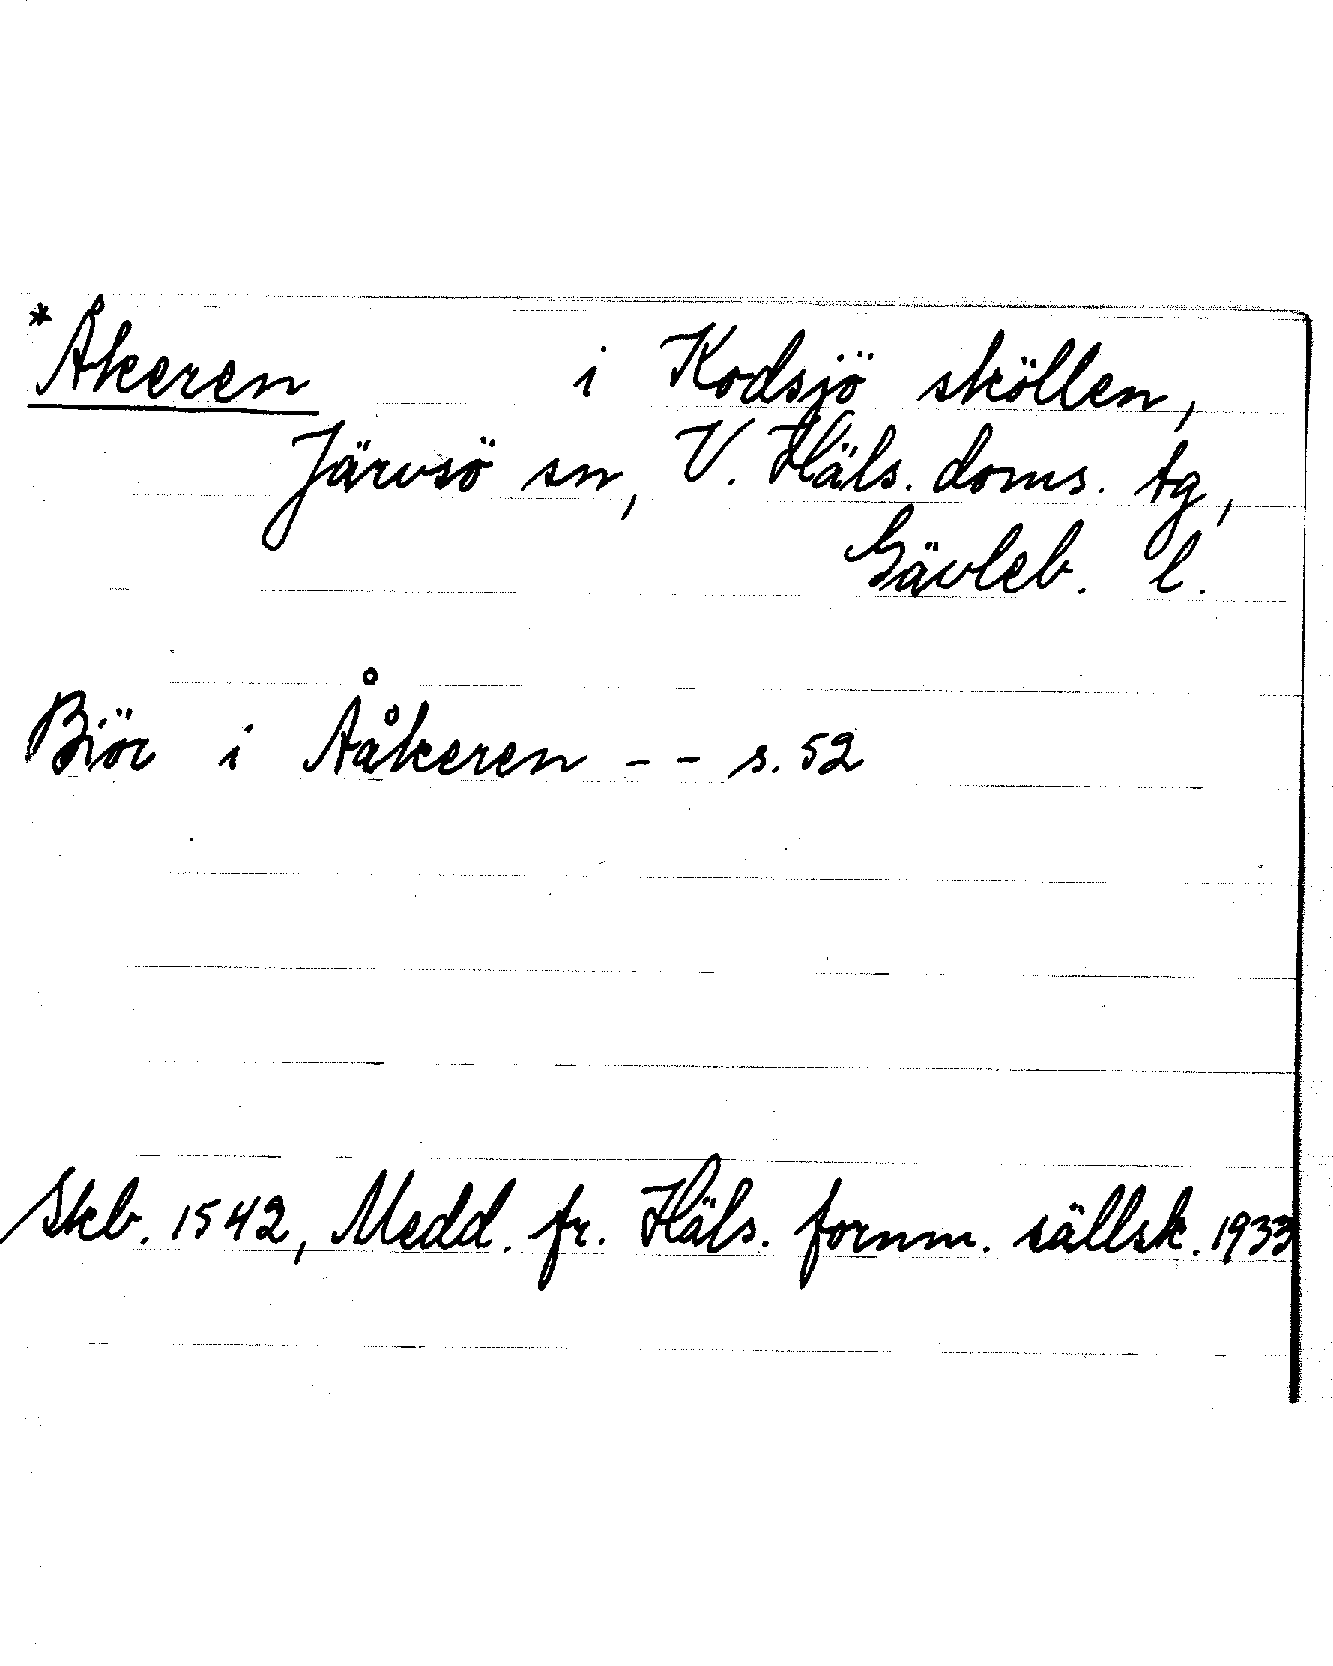 *Åkeren i Kodsjö sköllen,
Järvsö sn, V. Häls. doms. tg,
Gävleb. l.
Biör i Ååkeren - - s. 52
Skb. 1542, Medd. fr. Häls. fornm. sällsk. 1933